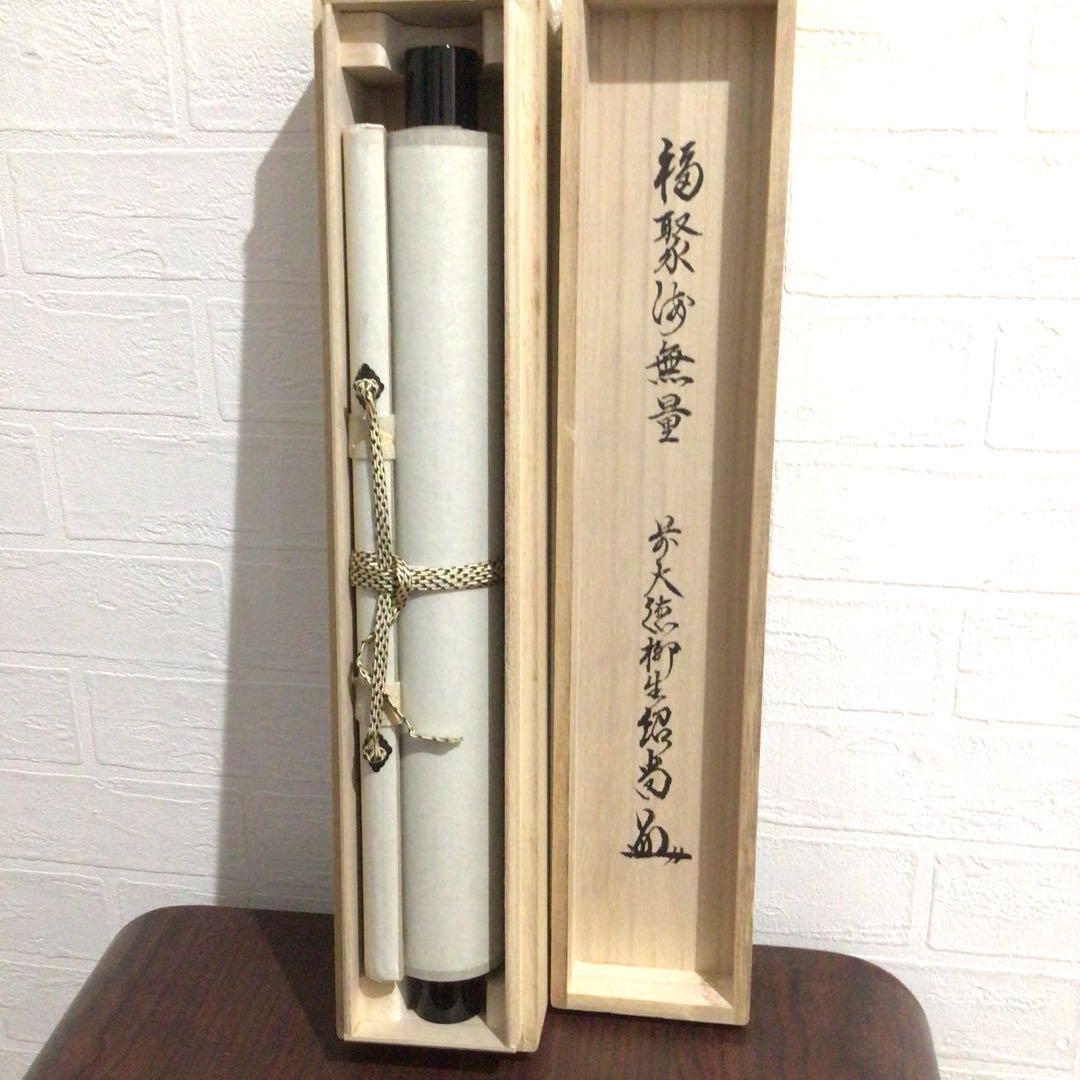 福聚海無量
前大徳柳生紹尚